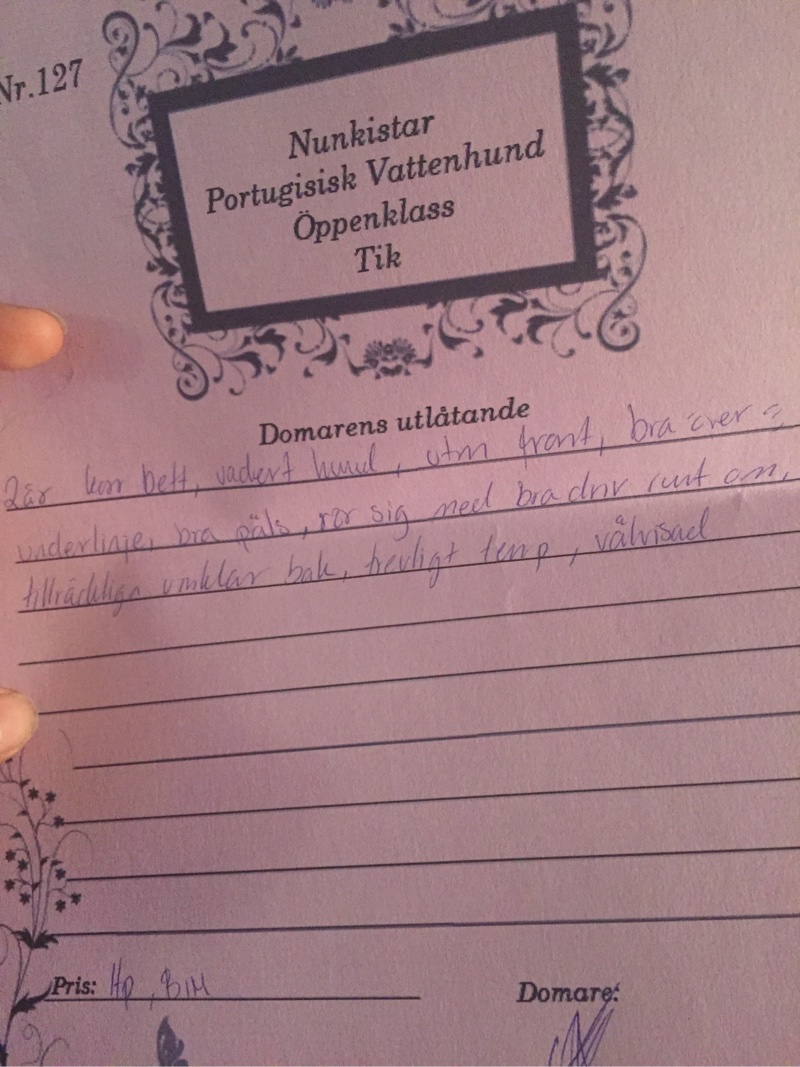 Nr.127
Nunkistar
Portugisisk Vattenhund
Öppenklass
Tik
Domarens utlåtande
2år korr bett, vackert huvud, utm front, bra över &
underlinje, bra päls, rör sig med bra driv runt om,
tillräckliga vinklar bak, trevligt temp, välvisad
Pris: Hp, BIM
Domare: